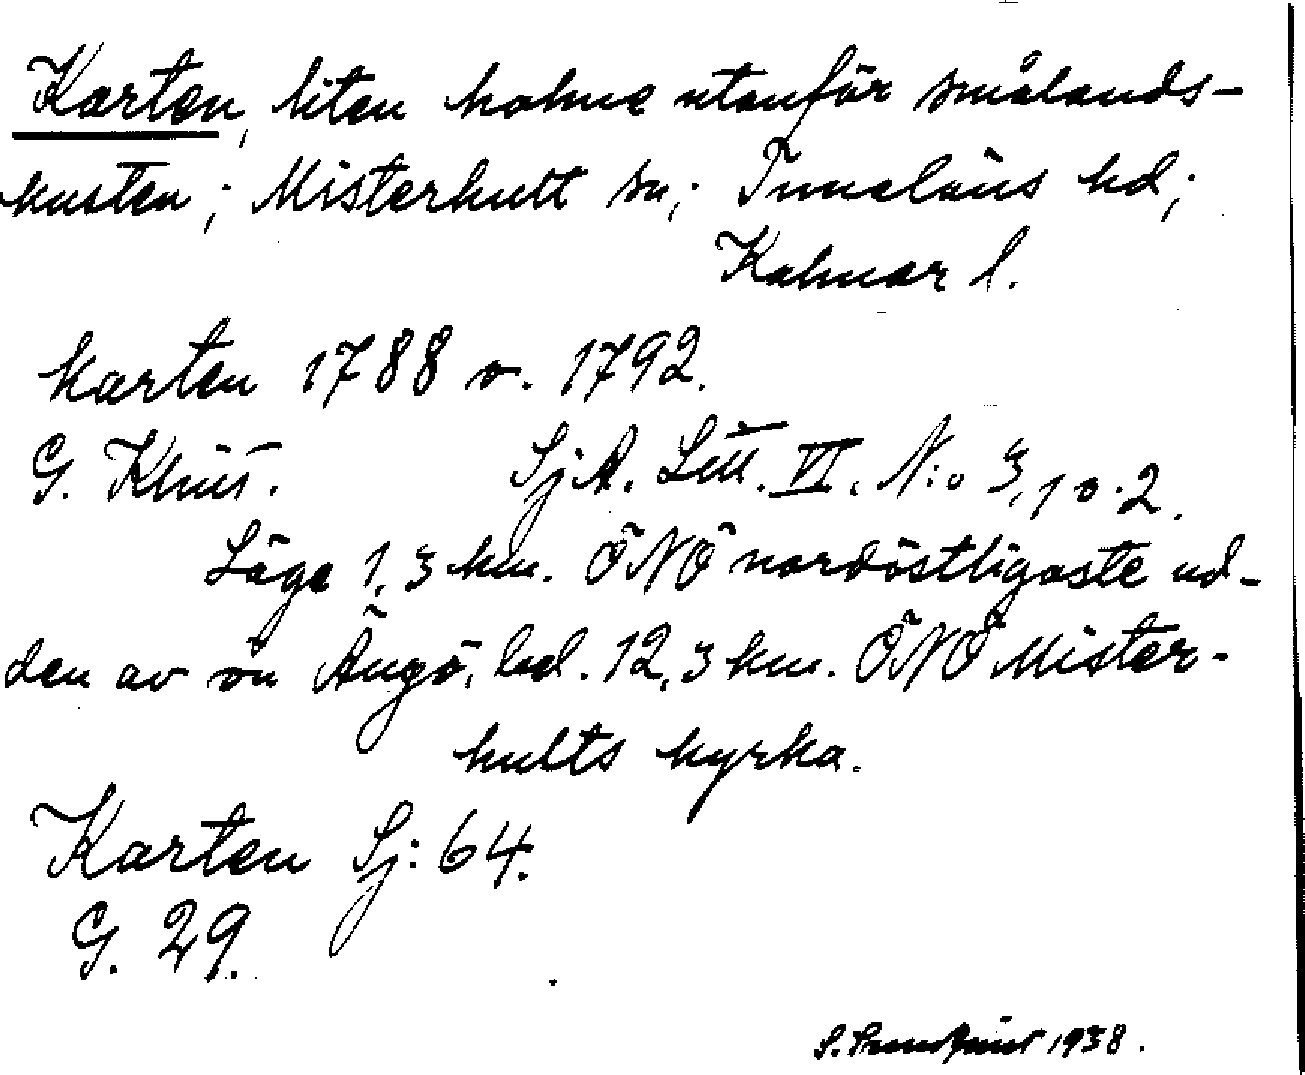 Karten, liten holme utanför smålands-
kusten; Misterhult sn; Tunaläns hd;
Kalmar l.
Karten 1788 o. 1792.
G. Klint. Sj A. Litt. VI. N:o 3, 1 o. 2.
Läge 1,3 km. ÖNÖ nordöstligaste ud-
den av ön Ängö, bel. 12,3 km. ÖNÖ Mister-
hults kyrka.
Karten Sj: 64.
G. 29.
S. 1938.